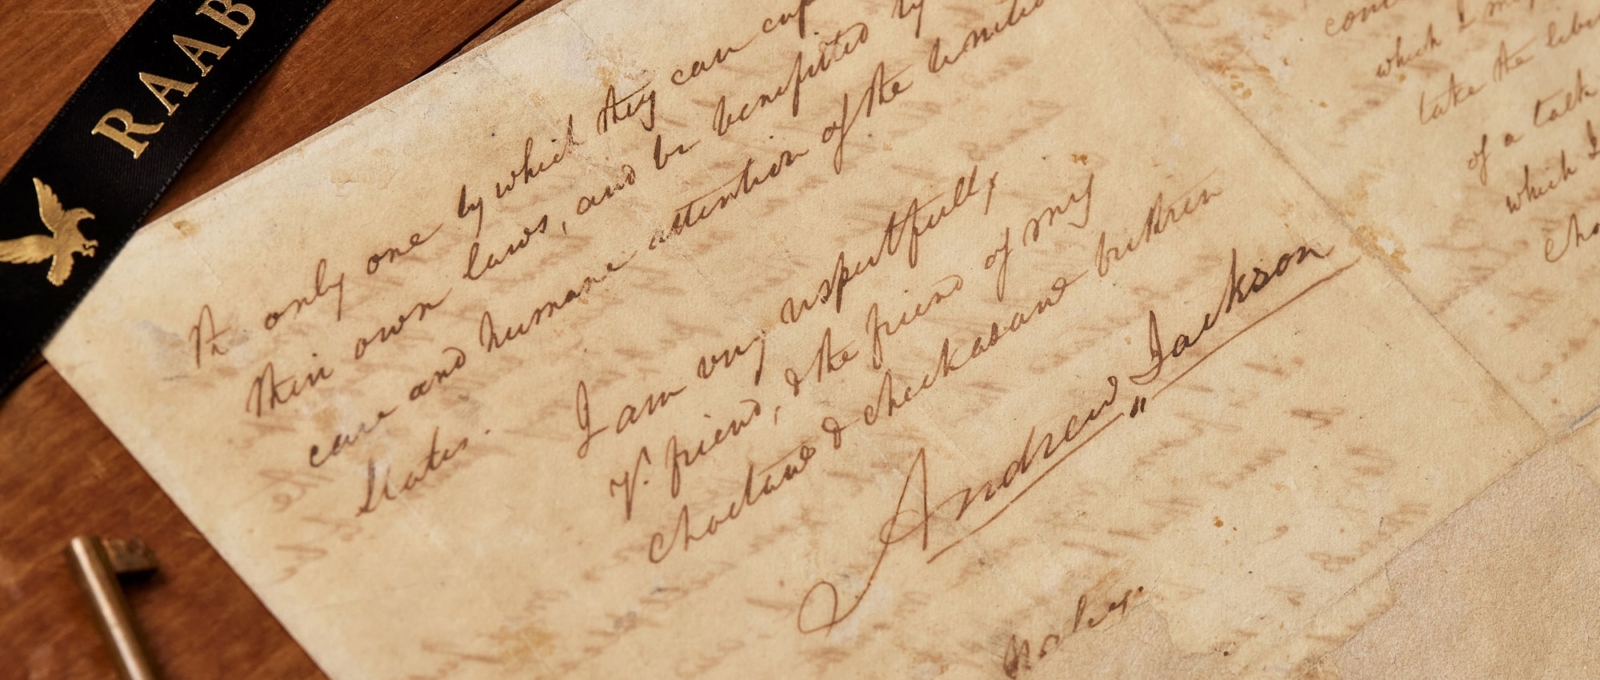 RAAB
by which they can
th only one
their own laws, and be benefitted by
care and humane attention of the United
States.
I am very respectfully
yr. friend, & the friend of my
choctaw & cheekasaw brethren
Andrew Jackson
which I
take the
of a talk
which I